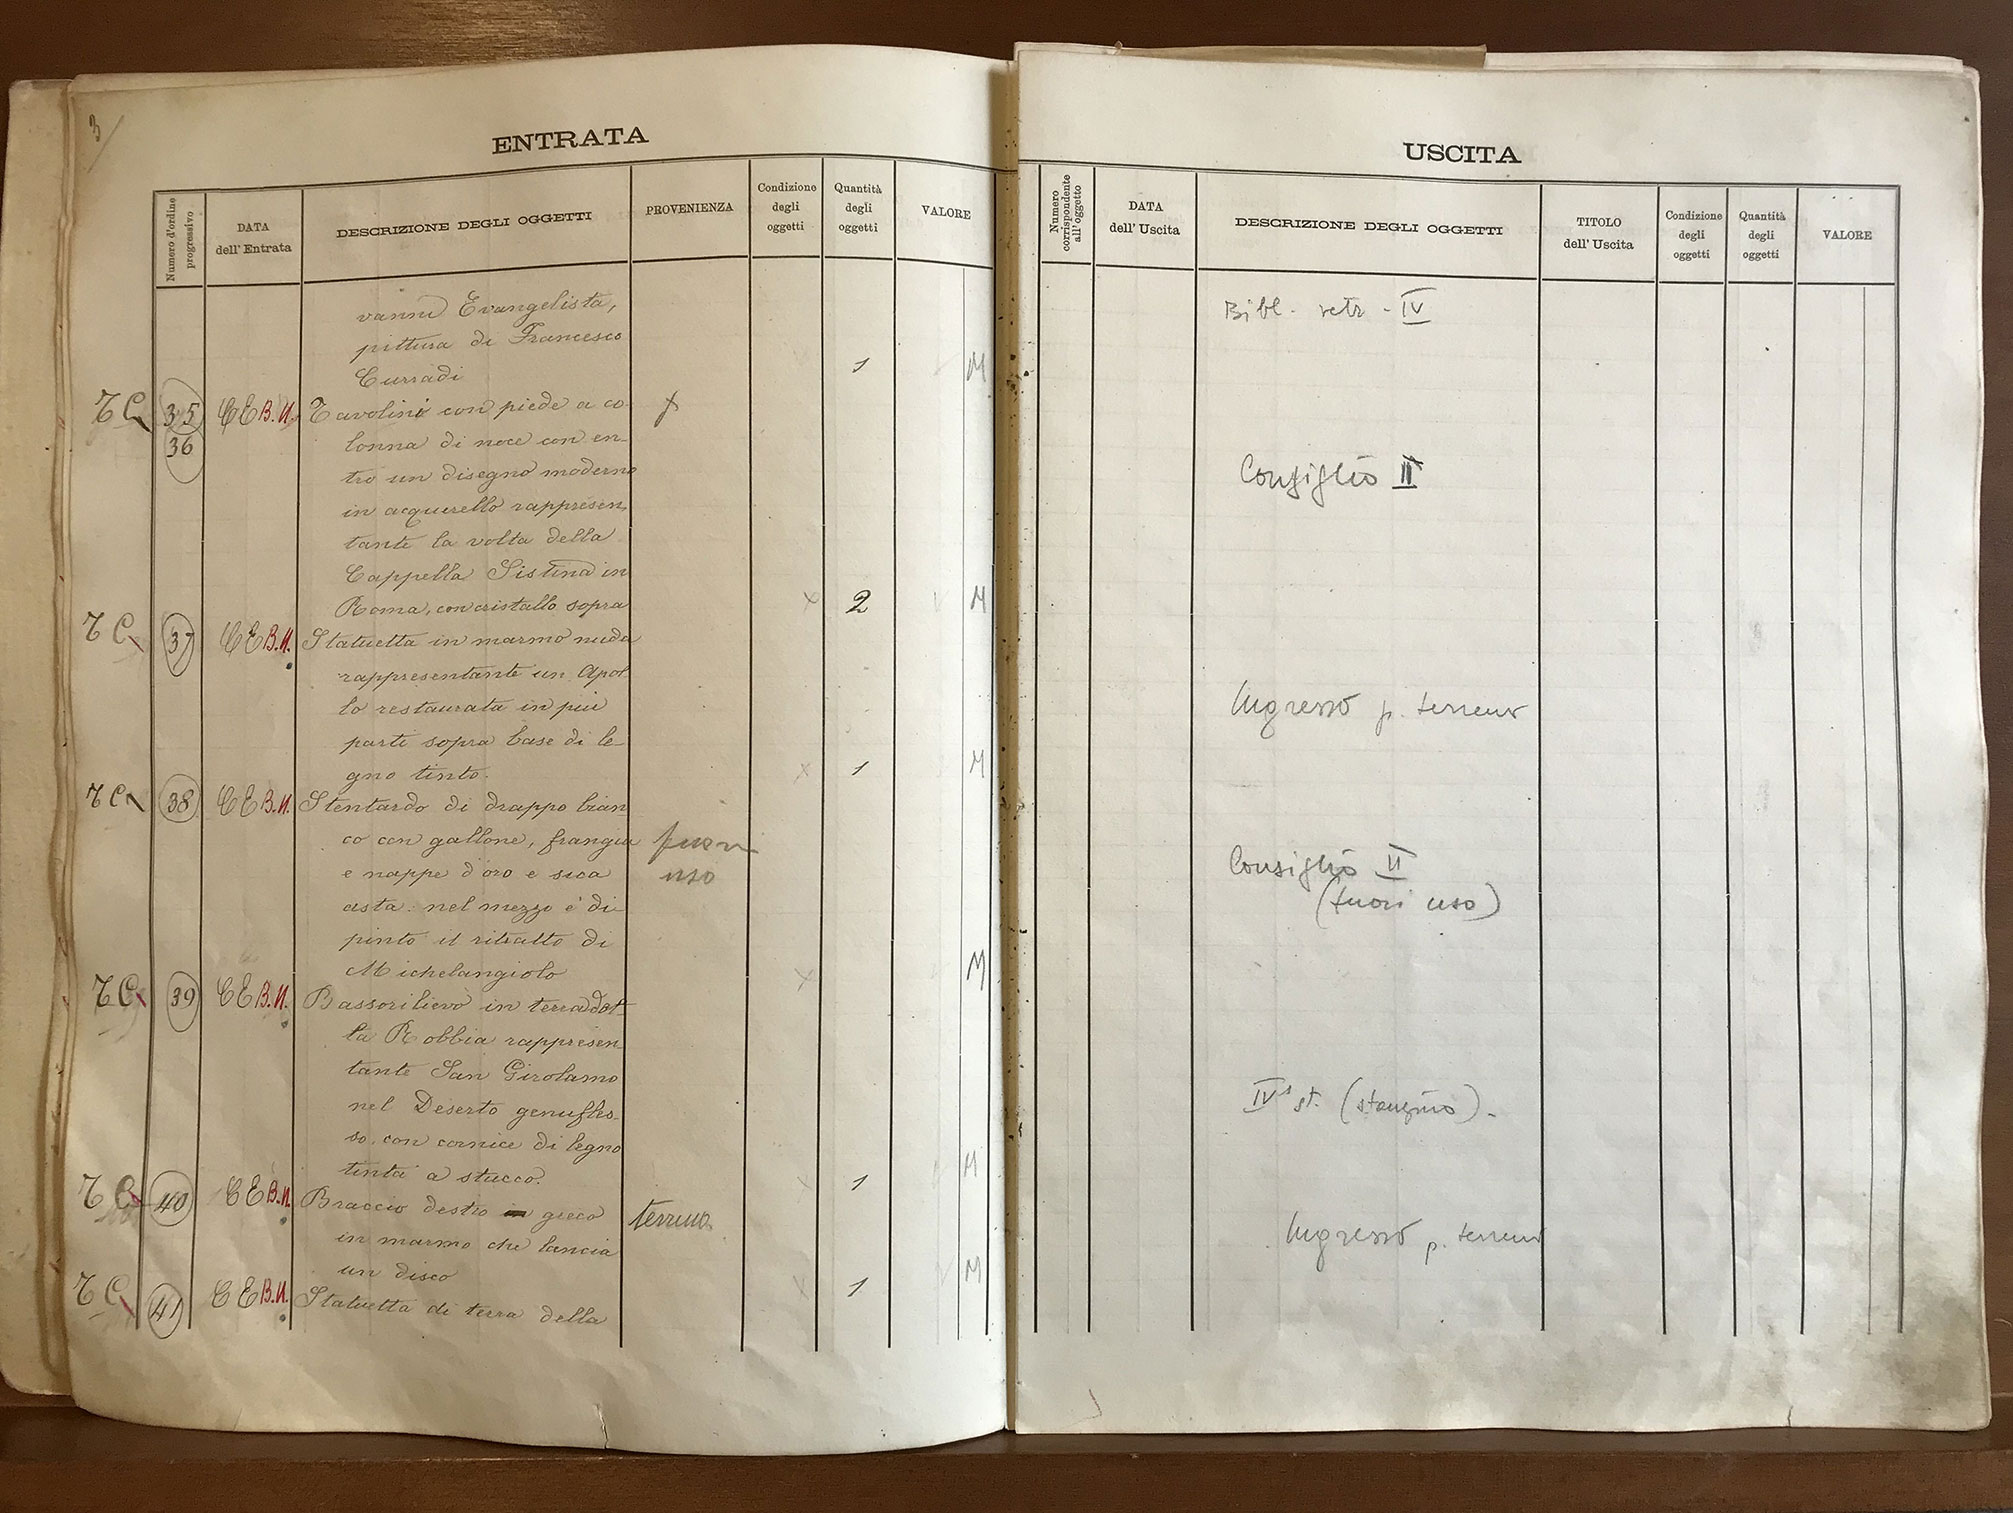 3/
ENTRATA
Numero d'ordine progressivo
DATA dell' Entrata
DESCRIZIONE DEGLI OGGETTI
PROVENIENZA
Condizione degli oggetti
Quantità degli oggetti
VALORE
vanni Evangelista,
pittura di Francesco
Curradi 1 M
T C 35 36 C E B.N. Tavolini con piede a co-
lonna di noce con en-
tro un disegno moderno
in acquerello rappresen-
tante la volta della
Cappella Sistina in
Roma, con cristallo sopra x 2 M
T C 37 C E B.N. Statuetta in marmo nuda
rappresentante un Apol-
lo restaurata in più
parti sopra base di le-
gno tinto. x 1 M
T C 38 C E B.N. Stentardo di drappo bian
co con gallone, frangia fuori
e nappe d'oro e sua uso
asta: nel mezzo è di-
pinto il ritratto di
Michelangiolo x M
T C 39 C E B.N. Bassorilievo in terra dol-
la Robbia rappresen-
tante San Girolamo
nel Deserto genufles-
so, con cornice di legno
tinta a stucco. 1 M
T C 40 C E B.N. Braccio destro greco terreno
in marmo che lancia
un disco x 1 M
T C 41 C E B.N. Statuetta di terra della
USCITA
Numero corrispondente all' oggetto
DATA dell' Uscita
DESCRIZIONE DEGLI OGGETTI
TITOLO dell' Uscita
Condizione degli oggetti
Quantità degli oggetti
VALORE
Bibl. retr. - IV
Consiglio II
Ingresso p. terreno
Consiglio II
(fuori uso)
IVa st. (stanzino).
Ingresso p. terreno